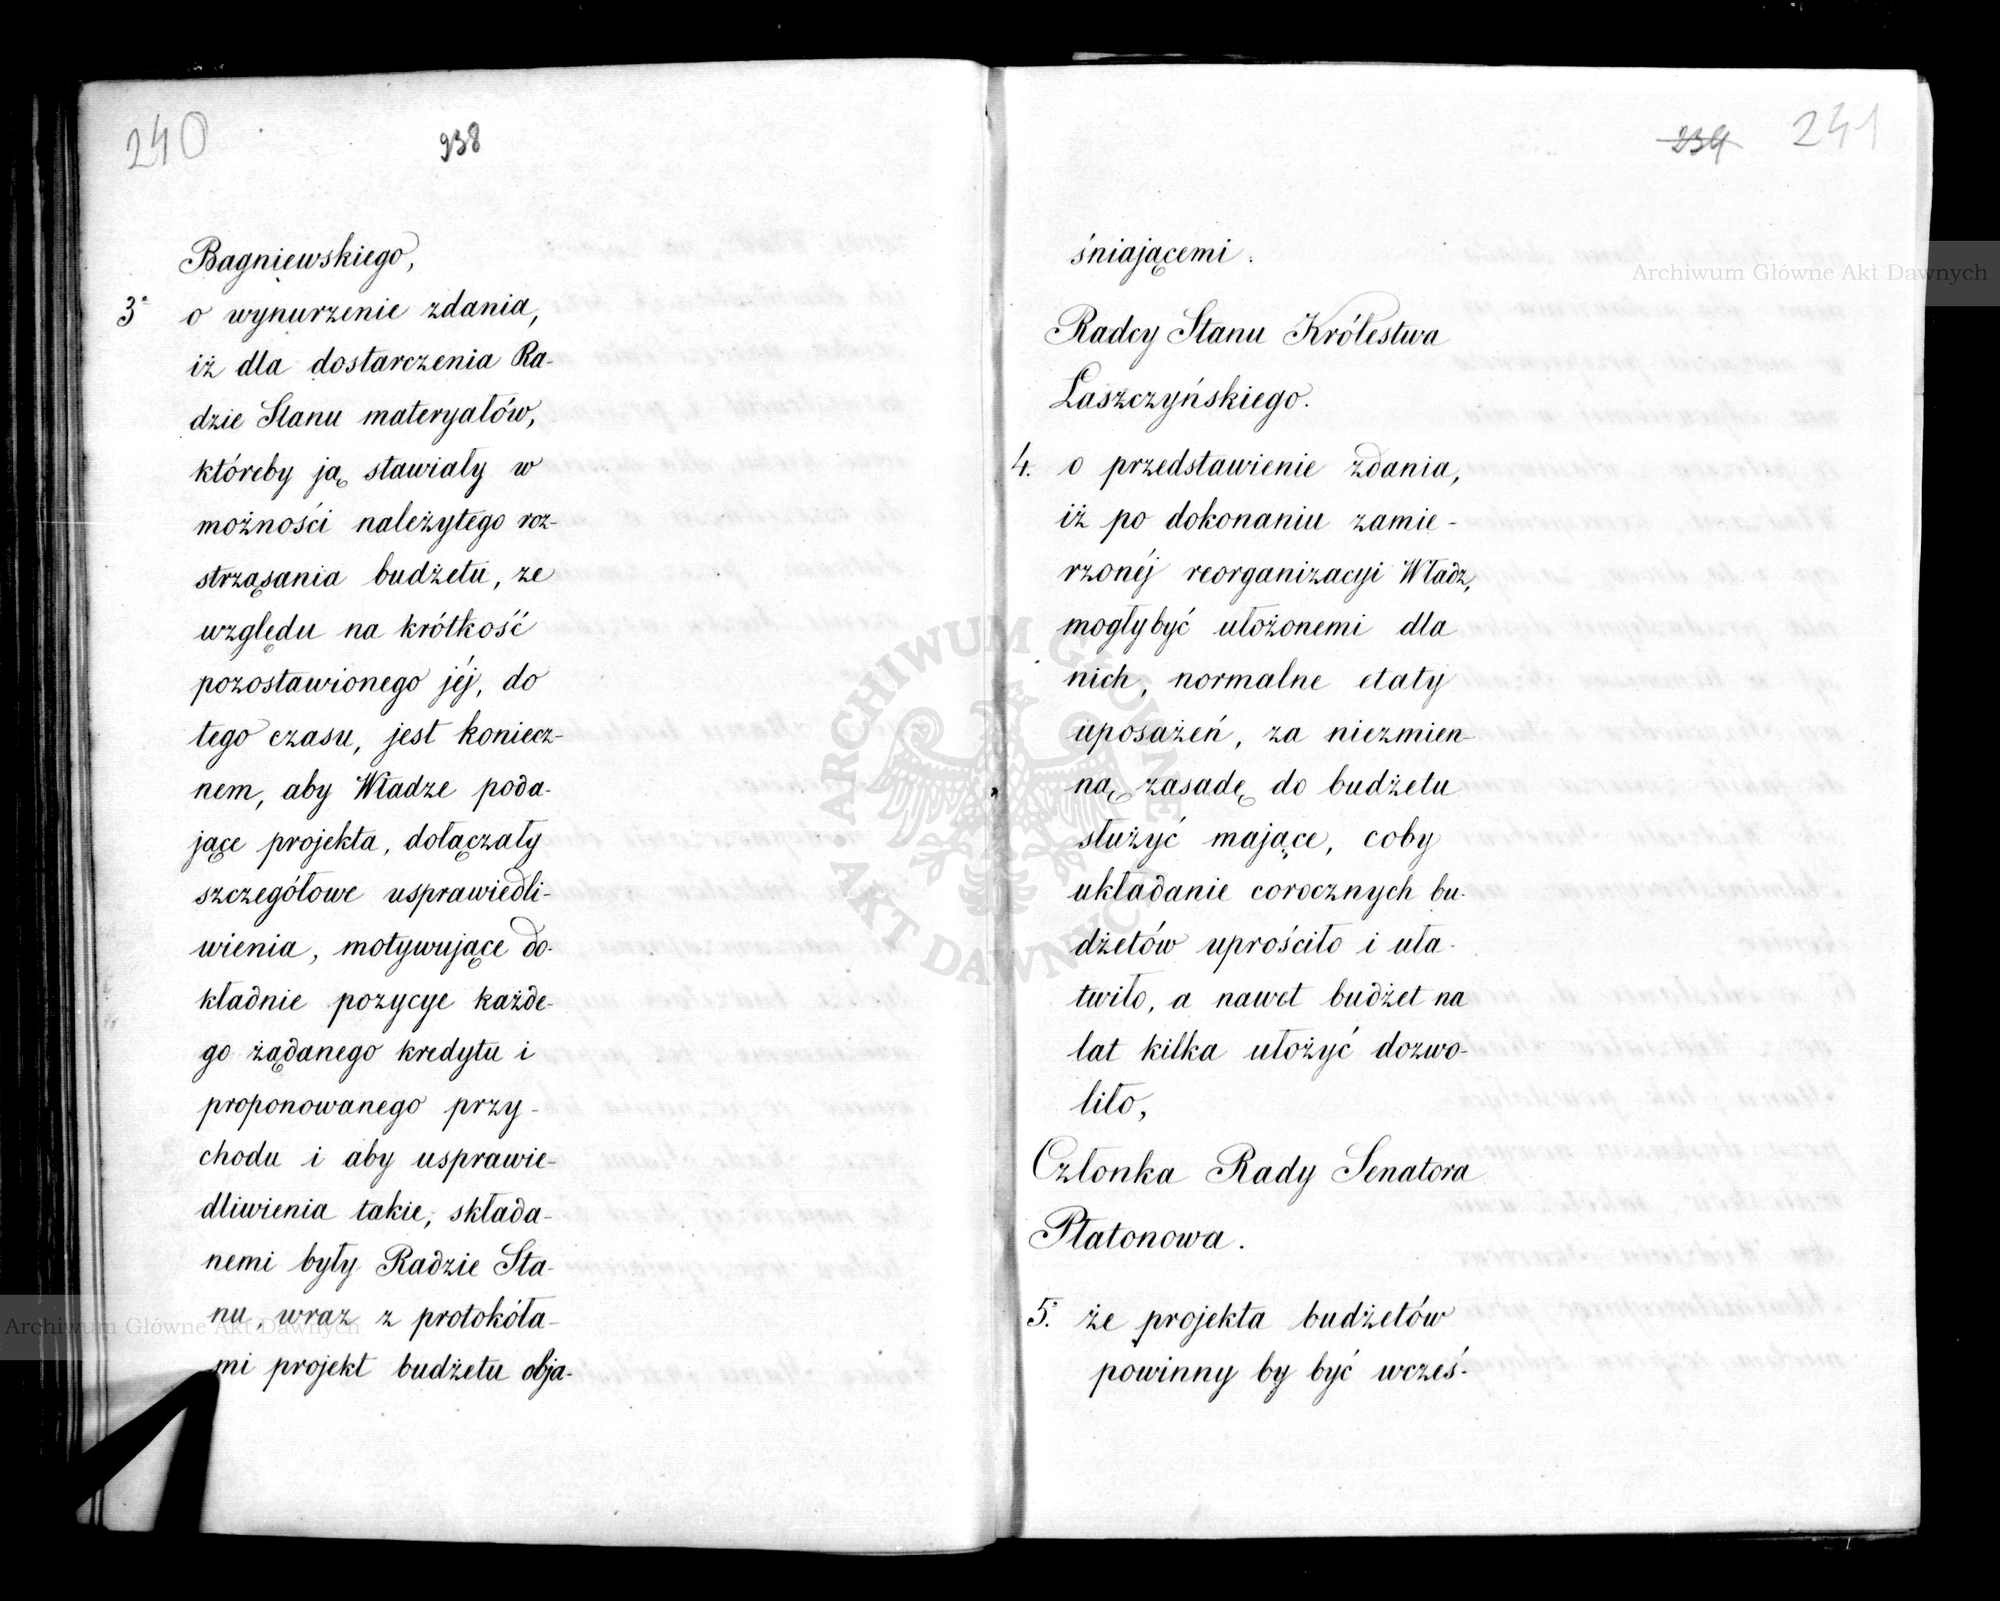 240
938
Bagniewskiego,
3° o wynurzenie zdania,
iż dla dostarczenia Ra-
dzie Stanu materyałów,
któreby ją stawiały w
możności należytego roz-
strząsania budżetu, ze
względu na krótkość
pozostawionego jéj, do
tego czasu, jest koniecz-
nem, aby Władze poda-
jące projekta, dołączały
szczegółowe usprawiedli-
wienia, motywujące do-
kładnie pozycye każde-
go żądanego kredytu i
proponowanego przy-
chodu i aby usprawie-
dliwienia takie, składa-
nemi były Radzie Sta-
nu, wraz z protokóła-
mi projekt budżetu obja-
239 241
śniającemi.
Radcy Stanu Królestwa
Łaszczyńskiego.
4. o przedstawienie zdania,
iż po dokonaniu zamie-
rzonéj reorganizacyi Władz,
mogłybyć ułożonemi dla
nich, normalne etaty
uposażeń, za niezmien-
ną zasadę do budżetu
służyć mające, coby
układanie corocznych bu-
dżetów uprościło i uła-
twiło, a nawet budżet na
lat kilka ułożyć dozwo-
liło,
Członka Rady Senatora
Płatonowa.
5. że projekta budżetów
powinny by być wcześ-
Archiwum Główne Akt Dawnych
Archiwum Główne Akt Dawnych
ARCHIWUM GŁÓWNE AKT DAWNYCH